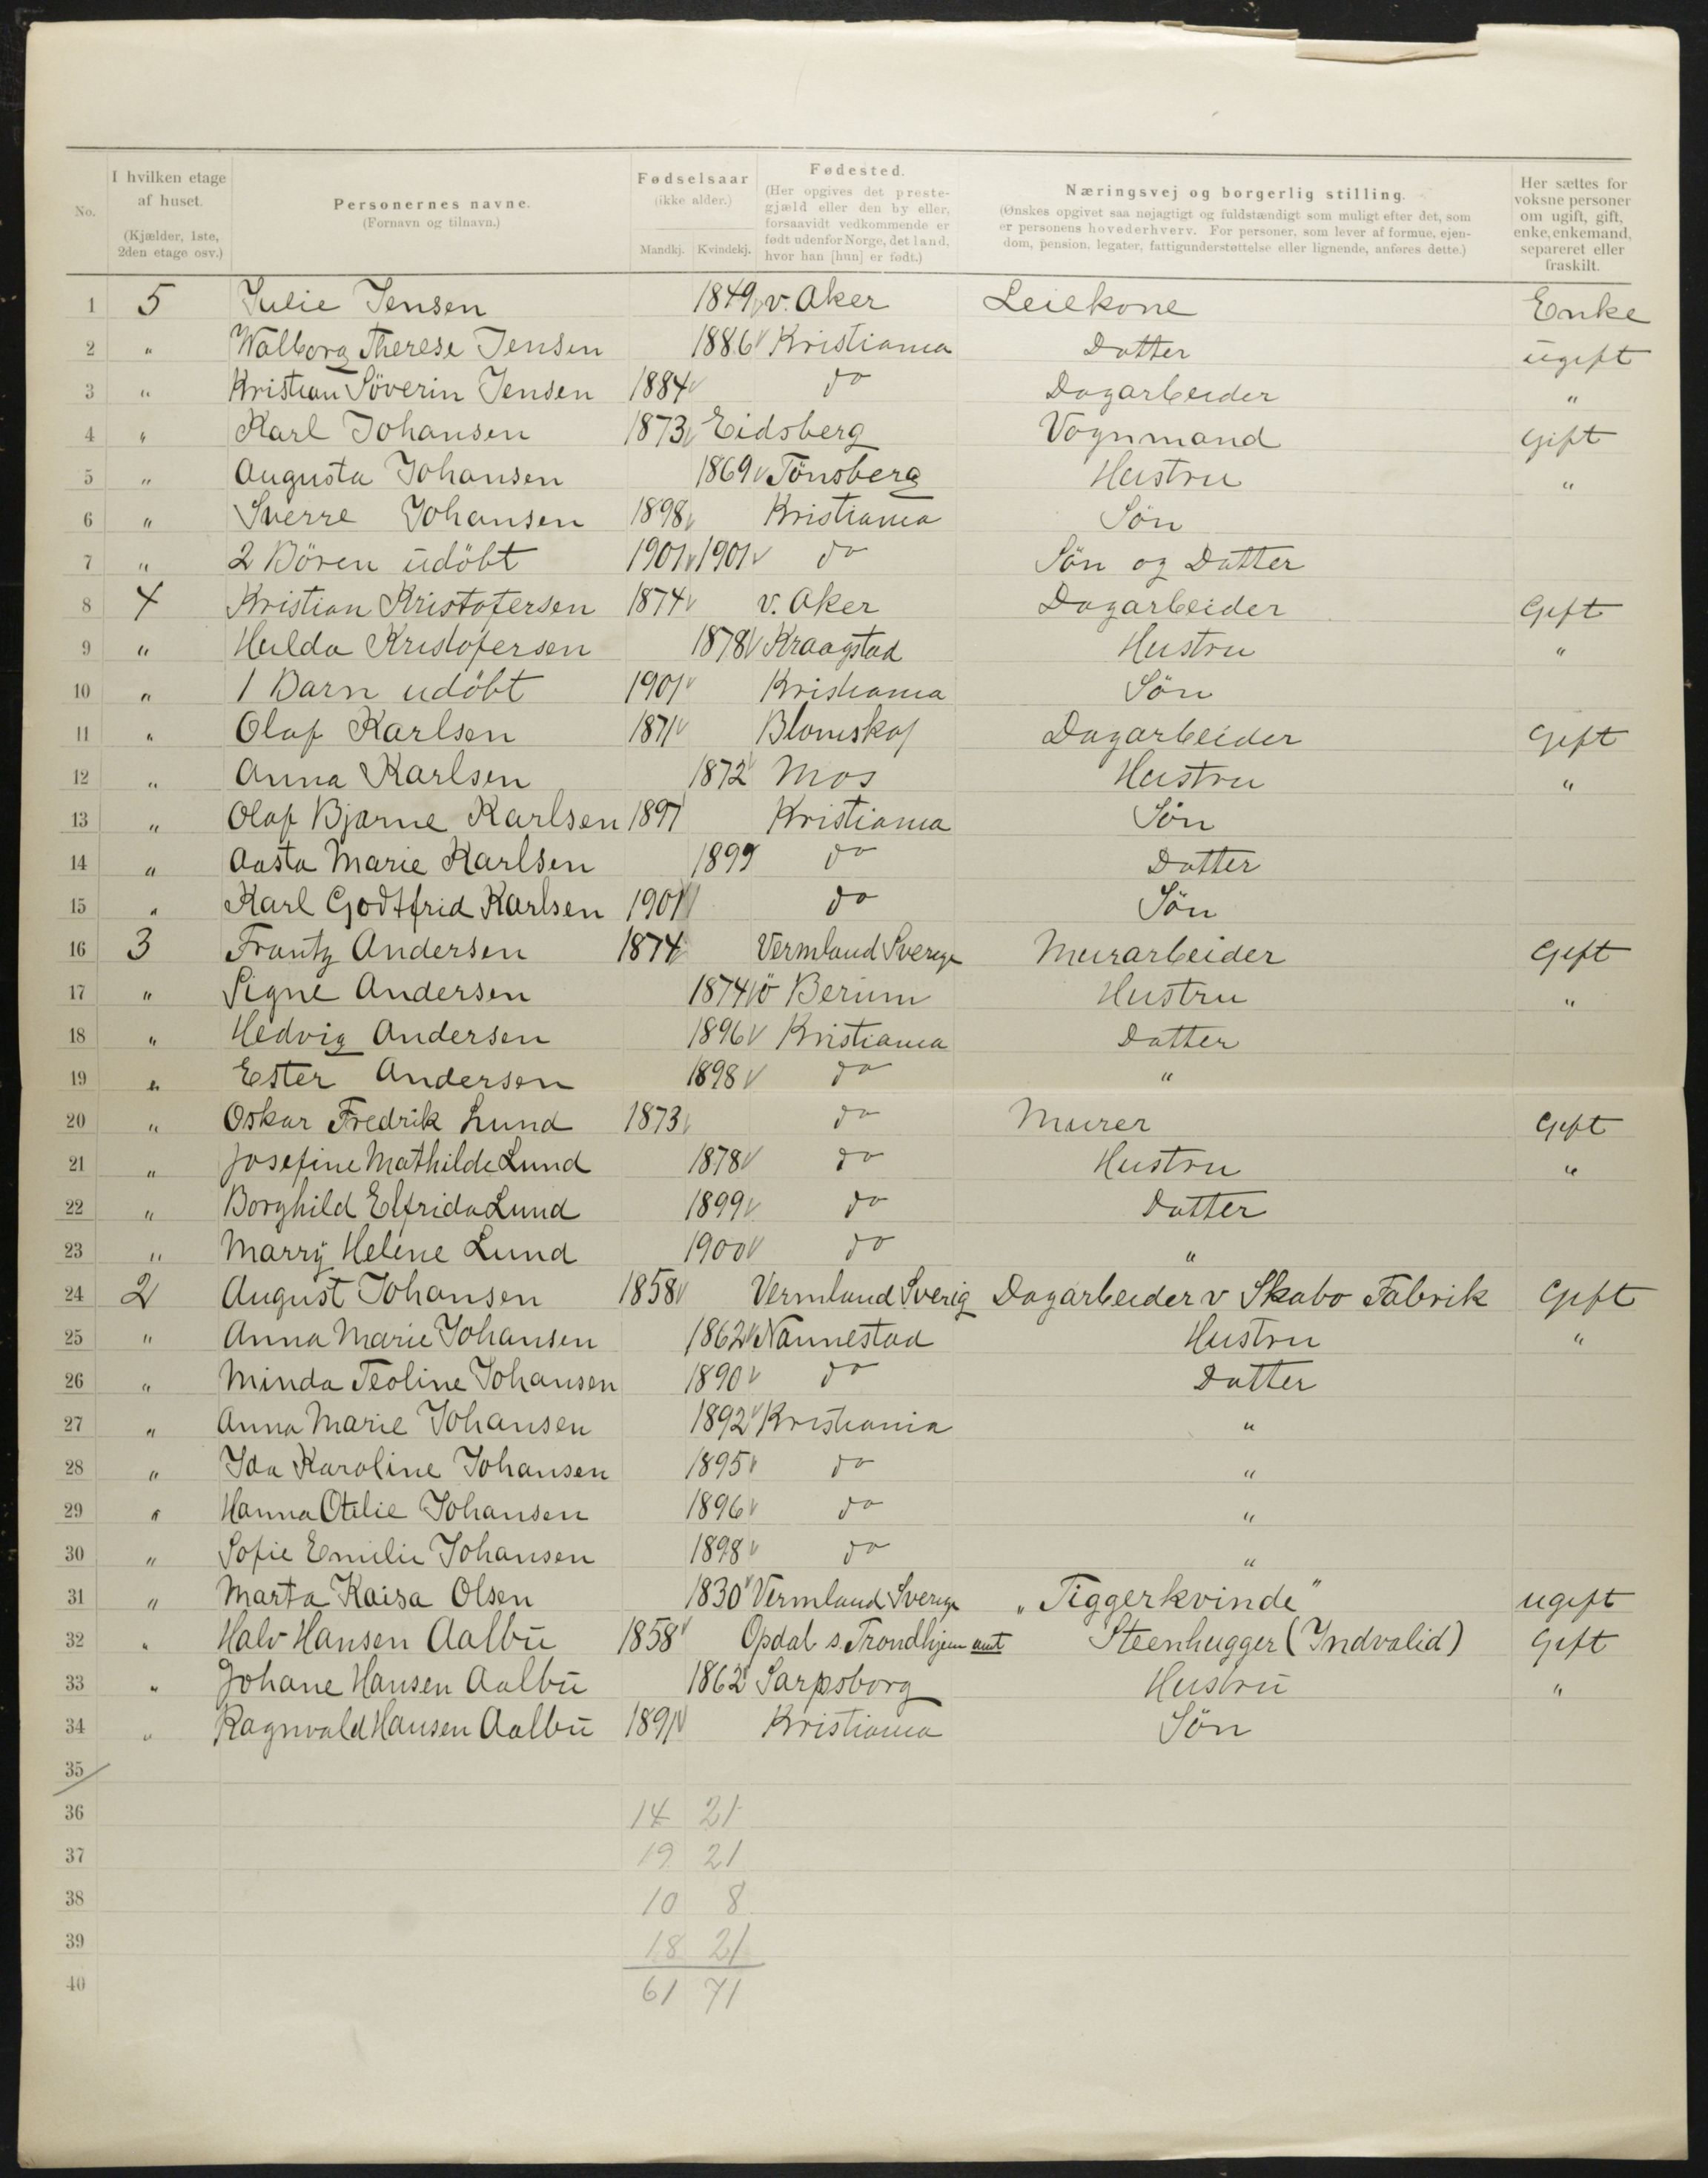 No. I hvilken etage af huset. (Kjælder, 1ste, 2den etage osv.) Personernes navne. (Fornavn og tilnavn.) Fødselsaar (ikke alder.) Mandkj. Kvindekj. Fødested. (Her opgives det prestegjæld eller den by eller, forsaavidt vedkommende er født udenfor Norge, det land, hvor han [hun] er født.) Næringsvej og borgerlig stilling. (Ønskes opgivet saa nøjagtigt og fuldstændigt som muligt efter det, som er personens hovederhverv. For personer, som lever af formue, ejendom, pension, legater, fattigunderstøttelse eller lignende, anføres dette.) Her sættes for voksne personer om ugift, gift, enke, enkemand, separeret eller fraskilt.
1 5 Julie Jensen 1849 v. Aker Leiekone Enke
2 " Walborg Therese Jensen 1886 Kristiania Datter ugift
3 " Kristian Söverin Jensen 1884 do Dagarbeider "
4 " Karl Johansen 1873 Eidsberg Vognmand Gift
5 " Augusta Johansen 1869 Tönsberg Hustru "
6 " Sverre Johansen 1898 Kristiania Sön
7 " 2 Bören udöbt 1901 1901 do Sön og Datter
8 4 Kristian Kristofersen 1874 v. Aker Dagarbeider Gift
9 " Hulda Kristofersen 1878 Kraagstad Hustru "
10 " 1 Barn udöbt 1901 Kristiania Sön
11 " Olaf Karlsen 1871 Blomskof Dagarbeider Gift
12 " Anna Karlsen 1872 Mos Hustru "
13 " Olaf Bjarne Karlsen 1897 Kristiania Sön
14 " Aasta Marie Karlsen 1899 do Datter
15 " Karl Godtfrid Karlsen 1901 do Sön
16 3 Frantz Andersen 1874 Vermland Sverige Murarbeider Gift
17 " Signe Andersen 1874 ö Berum Hustru "
18 " Hedvig Andersen 1896 Kristiania Datter
19 " Ester Andersen 1898 do "
20 " Oskar Fredrik Lund 1873 do Murer Gift
21 " Josefine Mathilde Lund 1878 do Hustru "
22 " Borghild Elfrida Lund 1899 do Datter
23 " Marry Helene Lund 1900 do "
24 2 August Johansen 1858 Vermland Sverig Dagarbeider v Skabo Fabrik Gift
25 " Anna Marie Johansen 1862 Nannestad Hustru "
26 " Minda Teoline Johansen 1890 do Datter
27 " Anna Marie Johansen 1892 Kristiania "
28 " Ida Karoline Johansen 1895 do "
29 " Hanna Otilie Johansen 1896 do "
30 " Sofie Emilie Johansen 1898 do "
31 " Marta Kaisa Olsen 1830 Vermland Sverige "Tiggerkvinde" ugift
32 " Halv Hansen Aalbu 1858 Opdal s. Trondhjem amt Steenhugger (Indvalid) Gift
33 " Johane Hansen Aalbu 1862 Sarpsborg Hustru "
34 " Ragnvald Hansen Aalbu 1891 Kristiania Sön
35
36 14 21
37 19 21
38 10 8
39 18 21
40 61 71